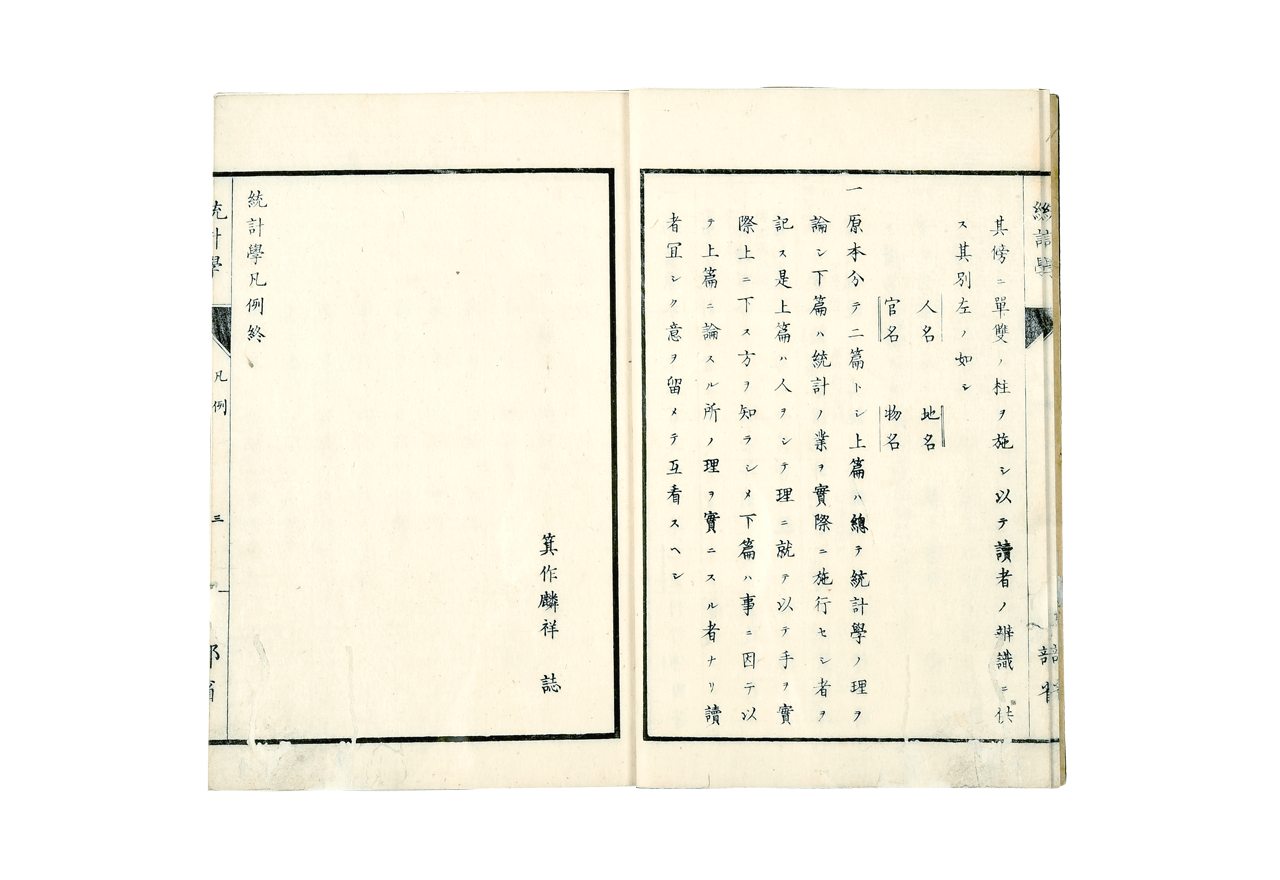 其傍ニ單雙ノ柱ヲ施シ以テ讀者ノ辨識ニ供
ス其別左ノ如シ
人名　地名
官名　物名
一原本分テ二篇トシ上篇ハ總テ統計學ノ理ヲ
論シ下篇ハ統計ノ業ヲ實際ニ施行セシ者ヲ
記ス是上篇ハ人ヲシテ理ニ就テ以テ手ヲ實
際上ニ下ス方ヲ知ラシメ下篇ハ事ニ因テ以
テ上篇ニ論スル所ノ理ヲ實ニスル者ナリ讀
者冝シク意ヲ留メテ互看スヘシ
箕作麟祥　誌
統計學凡例終
統計學
凡例
三
部省